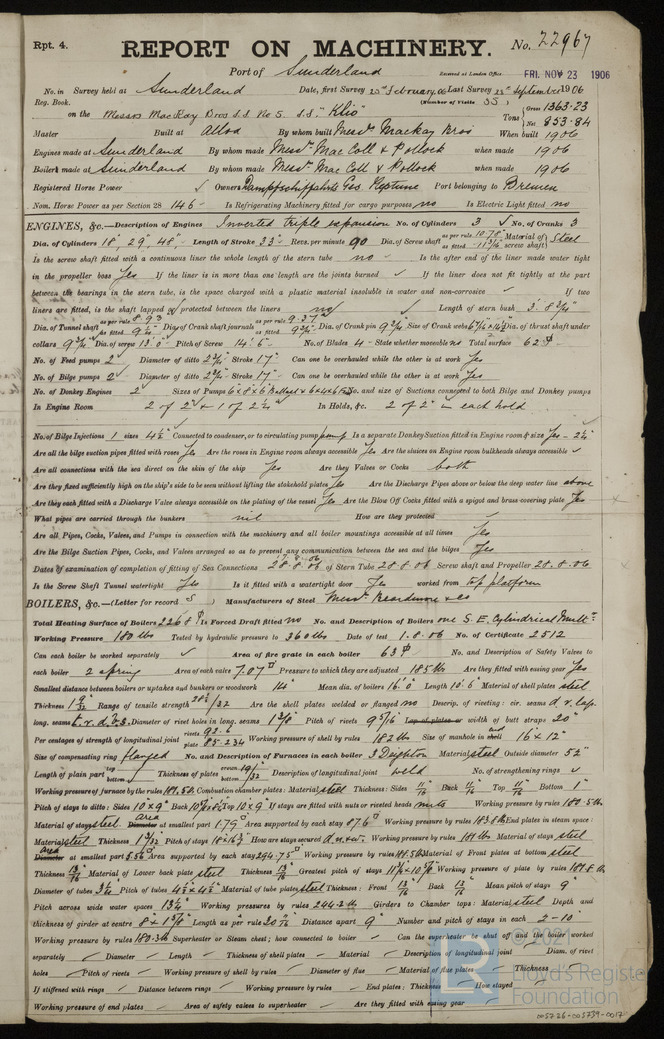 Rpt. 4. REPORT ON MACHINERY. No. 22967
Port of Sunderland Received at London Office FRI. NOV 23 1906
No. in Survey held at Sunderland Date, first Survey February 06 Last Survey September 1906
Reg. Book. (Number of Visits 55)
on the Messrs MacKay Bros S.S No 5. S.S. "Klio" Tons Gross 1363.23 Net 853.84
Master Built at Alloa By whom built Messrs Mackay Bros When built 1906
Engines made at Sunderland By whom made Messrs Mac Coll & Pollock when made 1906
Boilers made at Sunderland By whom made Messrs Mac Coll & Pollock when made 1906
Registered Horse Power Owners Dampfschifffahrts Ges Neptune Port belonging to Bremen
Nom. Horse Power as per Section 28 146 Is Refrigerating Machinery fitted for cargo purposes no Is Electric Light fitted no
ENGINES, &c.—Description of Engines Inverted triple expansion No. of Cylinders 3 No. of Cranks 3
Dia. of Cylinders 18", 29", 48" Length of Stroke 33" Revs. per minute 90 Dia. of Screw shaft as per rule 10.78" as fitted Material of screw shaft Steel
Is the screw shaft fitted with a continuous liner the whole length of the stern tube no Is the after end of the liner made water tight
in the propeller boss Yes If the liner is in more than one length are the joints burned If the liner does not fit tightly at the part
between the bearings in the stern tube, is the space charged with a plastic material insoluble in water and non-corrosive If two
liners are fitted, is the shaft lapped or protected between the liners no Length of stern bush 3' 8¾"
Dia. of Tunnel shaft as per rule 8.93 as fitted 9¼" Dia. of Crank shaft journals as per rule 9.37" as fitted 9¾" Dia. of Crank pin 9¾" Size of Crank webs Dia. of thrust shaft under
collars 9¾" Dia. of screw 13'.0" Pitch of Screw 14'.6" No. of Blades 4 State whether moveable no Total surface 62
No. of Feed pumps 2 Diameter of ditto 2¾" Stroke 17" Can one be overhauled while the other is at work Yes
No. of Bilge pumps 2 Diameter of ditto 2¾" Stroke 17" Can one be overhauled while the other is at work Yes
No. of Donkey Engines 2 Sizes of Pumps 6x8x6 Ballast & 6x4x6 No. and size of Suctions connected to both Bilge and Donkey pumps
In Engine Room 2 of 2" & 1 of 2¼" In Holds, &c. 2 of 2" in each hold
No. of Bilge Injections 1 sizes 4½" Connected to condenser, or to circulating pump pump Is a separate Donkey Suction fitted in Engine room & size Yes - 2¼
Are all the bilge suction pipes fitted with roses Yes Are the roses in Engine room always accessible Yes Are the sluices on Engine room bulkheads always accessible
Are all connections with the sea direct on the skin of the ship Yes Are they Valves or Cocks both
Are they fixed sufficiently high on the ship's side to be seen without lifting the stokehold plates Yes Are the Discharge Pipes above or below the deep water line above
Are they each fitted with a Discharge Valve always accessible on the plating of the vessel Yes Are the Blow Off Cocks fitted with a spigot and brass covering plate Yes
What pipes are carried through the bunkers nil How are they protected
Are all Pipes, Cocks, Valves, and Pumps in connection with the machinery and all boiler mountings accessible at all times Yes
Are the Bilge Suction Pipes, Cocks, and Valves arranged so as to prevent any communication between the sea and the bilges Yes
Dates of examination of completion of fitting of Sea Connections 28.8.06 of Stern Tube 28 8 06 Screw shaft and Propeller 28.8.06
Is the Screw Shaft Tunnel watertight Yes Is it fitted with a watertight door Yes worked from top platform
BOILERS, &c.—(Letter for record S) Manufacturers of Steel Messrs Beardmore & Co
Total Heating Surface of Boilers 2268 Is Forced Draft fitted no No. and Description of Boilers one S.E. Cylindrical Mult
Working Pressure 180 lbs Tested by hydraulic pressure to 360 lbs Date of test 1.8.06 No. of Certificate 2512
Can each boiler be worked separately Area of fire grate in each boiler 63 No. and Description of Safety Valves to
each boiler 2 spring Area of each valve 7.07 Pressure to which they are adjusted 185 lbs Are they fitted with easing gear Yes
Smallest distance between boilers or uptakes and bunkers or woodwork 14" Mean dia. of boilers 16'.0" Length 10'.6" Material of shell plates steel
Thickness 1 9/32 Range of tensile strength 28½/32 Are the shell plates welded or flanged no Descrip. of riveting: cir. seams d.r. lap.
long. seams t.r.d.b.s. Diameter of rivet holes in long. seams 1⅜" Pitch of rivets 9 5/16" Lap of plates or width of butt straps 20"
Per centages of strength of longitudinal joint rivets 92.6 plate 85.234 Working pressure of shell by rules 182 lbs Size of manhole in end 16" x 12"
Size of compensating ring flanged No. and Description of Furnaces in each boiler 3 Deighton Material steel Outside diameter 52"
Length of plain part top bottom Thickness of plates crown bottom 19/32 Description of longitudinal joint weld No. of strengthening rings
Working pressure of furnace by the rules 189.5 lb Combustion chamber plates: Material steel Thickness: Sides 11/16 Back 11/16 Top 11/16 Bottom 1"
Pitch of stays to ditto: Sides 10 x 9" Back Top 10 x 9" If stays are fitted with nuts or riveted heads nuts Working pressure by rules 180.5 lb
Material of stays steel area Diameter at smallest part 1.79 Area supported by each stay 87.6 Working pressure by rules 183.8 lb End plates in steam space:
Material steel Thickness 1 3/32 Pitch of stays 18 x 16½" How are stays secured d.n.&w. Working pressure by rules 181 lbs Material of stays steel
area Diameter at smallest part 5.56 Area supported by each stay 294.75 Working pressure by rules Material of Front plates at bottom steel
Thickness 13/16 Material of Lower back plate steel Thickness 13/16 Greatest pitch of stays Working pressure of plate by rules 189.8 lb
Diameter of tubes 3¼ Pitch of tubes 4½ x 4½ Material of tube plates steel Thickness: Front 13/16 Back 13/16 Mean pitch of stays 9"
Pitch across wide water spaces 13¼" Working pressures by rules 244.2 lb Girders to Chamber tops: Material steel Depth and
thickness of girder at centre 8 x 1⅝" Length as per rule Distance apart 9" Number and pitch of stays in each 2 - 10"
Working pressure by rules 180.3 lb Superheater or Steam chest; how connected to boiler Can the superheater be shut off and the boiler worked
separately Diameter Length Thickness of shell plates Material Description of longitudinal joint Diam. of rivet
holes Pitch of rivets Working pressure of shell by rules Diameter of flue Material of flue plates Thickness
If stiffened with rings Distance between rings Working pressure by rules End plates: Thickness How stayed
Working pressure of end plates Area of safety valves to superheater Are they fitted with easing gear
© 2021
LR Lloyd's Register
Foundation
005726-005739-0017